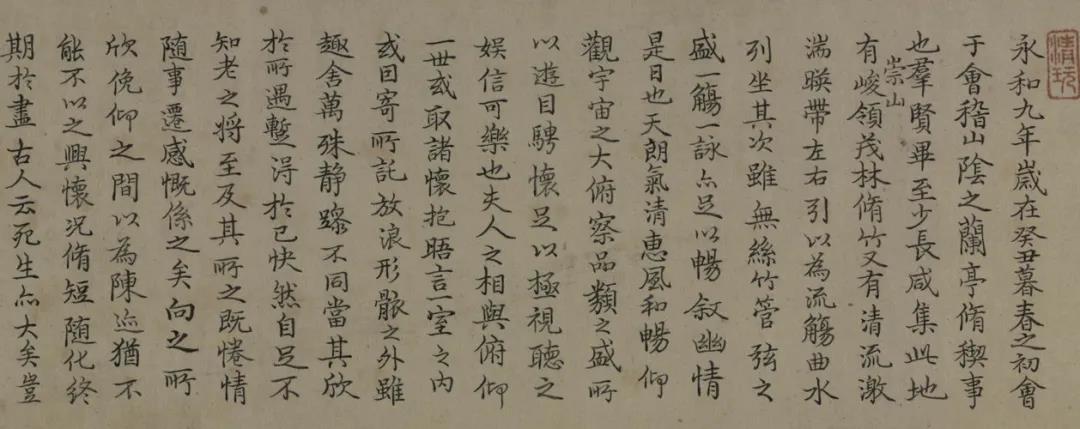 永和九年歲在癸丑暮春之初會
于會稽山陰之蘭亭脩稧事
也羣賢畢至少長咸集此地
有崇山峻領茂林脩竹又有清流激
湍暎帶左右引以為流觴曲水
列坐其次雖無絲竹管弦之
盛一觴一詠亦足以暢敘幽情
是日也天朗氣清惠風和暢仰
觀宇宙之大俯察品類之盛所
以遊目騁懷足以極視聽之
娛信可樂也夫人之相與俯仰
一世或取諸懷抱晤言一室之內
或因寄所託放浪形骸之外雖
趣舍萬殊静躁不同當其欣
於所遇蹔得於己快然自足不
知老之將至及其所之既惓情
隨事遷感慨係之矣向之所
欣俛仰之間以為陳迹猶不
能不以之興懷況脩短随化終
期於盡古人云死生亦大矣豈
清玩